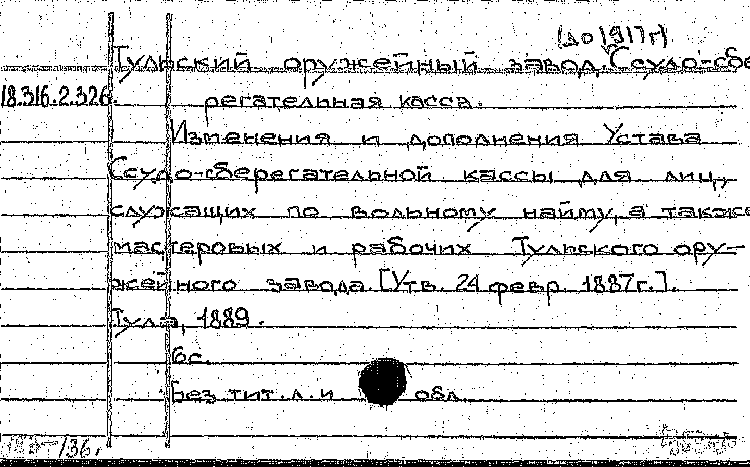 (до 1917г)
Тульский оружейный завод. Ссудо-сбе
18.316.2.326.
регательная касса.
Изменения и дополнения Устава
Ссудо-сберегательной кассы для лиц,
служащих по вольному найму, а также
мастеровых и рабочих Тульского ору-
жейного завода. [Утв. 24 февр. 1887г.].
Тула, 1889.
6с.
Без тит. л. и обл.
136.